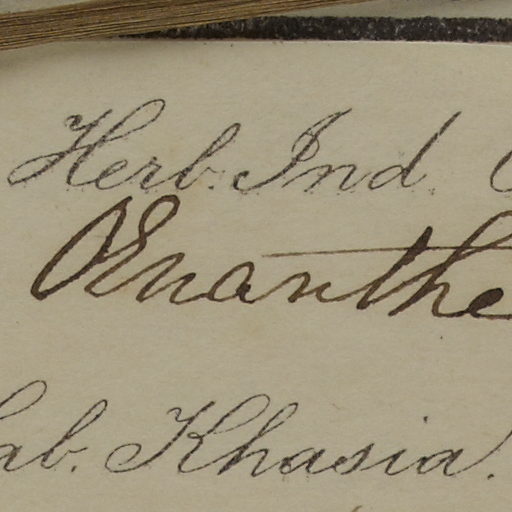 Herb. Ind.
Œnanthe
Hab. Khasia.